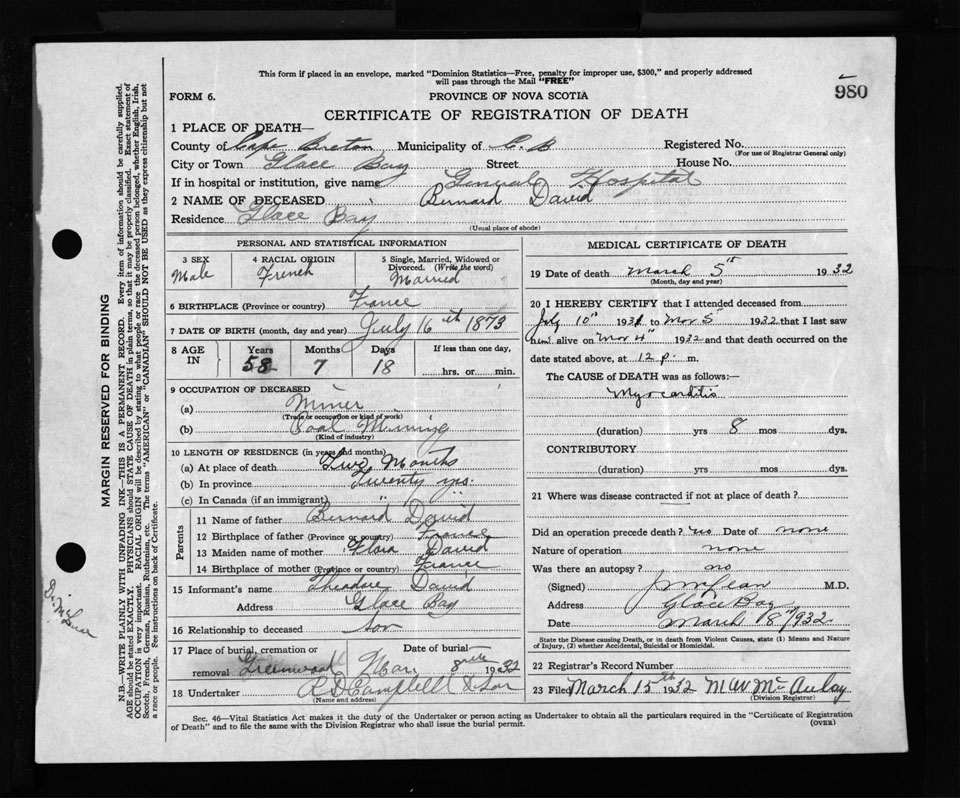 This form if placed in an envelope, marked "Dominion Statistics—Free, penalty for improper use, $300," and properly addressed
will pass through the Mail "FREE"
980
FORM 6.
PROVINCE OF NOVA SCOTIA
CERTIFICATE OF REGISTRATION OF DEATH
1 PLACE OF DEATH—
County of Cape Breton Municipality of C. B Registered No.
(For use of Registrar General only)
City or Town Glace Bay Street House No.
If in hospital or institution, give name General Hospital
2 NAME OF DECEASED Bernard David
Residence Glace Bay
(Usual place of abode)
PERSONAL AND STATISTICAL INFORMATION
3 SEX 4 RACIAL ORIGIN 5 Single, Married, Widowed or
Divorced. (Write the word)
Male French Married
6 BIRTHPLACE (Province or country) France
7 DATE OF BIRTH (month, day and year) July 16th 1873
8 AGE IN Years Months Days If less than one day,
58 7 18 hrs. or min.
9 OCCUPATION OF DECEASED
(a) Miner
(Trade or occupation or kind of work)
(b) Coal Mining
(Kind of industry)
10 LENGTH OF RESIDENCE (in years and months)
(a) At place of death Two Months
(b) In province Twenty yrs.
(c) In Canada (if an immigrant) " "
Parents
11 Name of father Bernard David
12 Birthplace of father (Province or country) France
13 Maiden name of mother Flora David
14 Birthplace of mother (Province or country) France
15 Informant's name Theodore David
Address Glace Bay
16 Relationship to deceased Son
17 Place of burial, cremation or Date of burial
removal Greenwood Mar 8th 1932
18 Undertaker R D Campbell & Son
(Name and address)
MEDICAL CERTIFICATE OF DEATH
19 Date of death March 5th 1932
(Month, day and year)
20 I HEREBY CERTIFY that I attended deceased from
July 10th 1931 to Mar 5th 1932 that I last saw
him alive on Mar 4th 1932 and that death occurred on the
date stated above, at 12 p. m.
The CAUSE of DEATH was as follows:—
Myocarditis
(duration) yrs 8 mos dys.
CONTRIBUTORY
(duration) yrs. mos. dys.
21 Where was disease contracted if not at place of death?
Did an operation precede death? no Date of none
Nature of operation none
Was there an autopsy? no
(Signed) M.D.
Address Glace Bay
Date March 8th 1932
State the Disease causing Death, or in death from Violent Causes, state (1) Means and Nature
of Injury, (2) whether Accidental, Suicidal or Homicidal.
22 Registrar's Record Number
23 Filed March 15th 1932 M W McAulay
(Division Registrar)
Sec. 46—Vital Statistics Act makes it the duty of the Undertaker or person acting as Undertaker to obtain all the particulars required in the "Certificate of Registration
of Death" and to file the same with the Division Registrar who shall issue the burial permit.
(OVER)
MARGIN RESERVED FOR BINDING
N.B.—WRITE PLAINLY WITH UNFADING INK—THIS IS A PERMANENT RECORD. Every item of information should be carefully supplied.
AGE should be stated EXACTLY. PHYSICIANS should STATE CAUSE OF DEATH in plain terms, so that it may be properly classified. Exact statement of
OCCUPATION is very important. RACIAL ORIGIN will be described by stating to what people or race the deceased person belonged, whether English, Irish,
Scotch, French, German, Russian, Ruthenian, etc. The terms "AMERICAN" or "CANADIAN" SHOULD NOT BE USED as they express citizenship but not
a race or people. See instructions on back of Certificate.